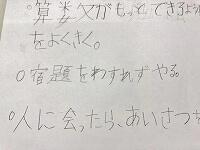 ○算数がもっとできるよう
をよくきく。
○宿題をわすれずやる。
○人に会ったら、あいさつを